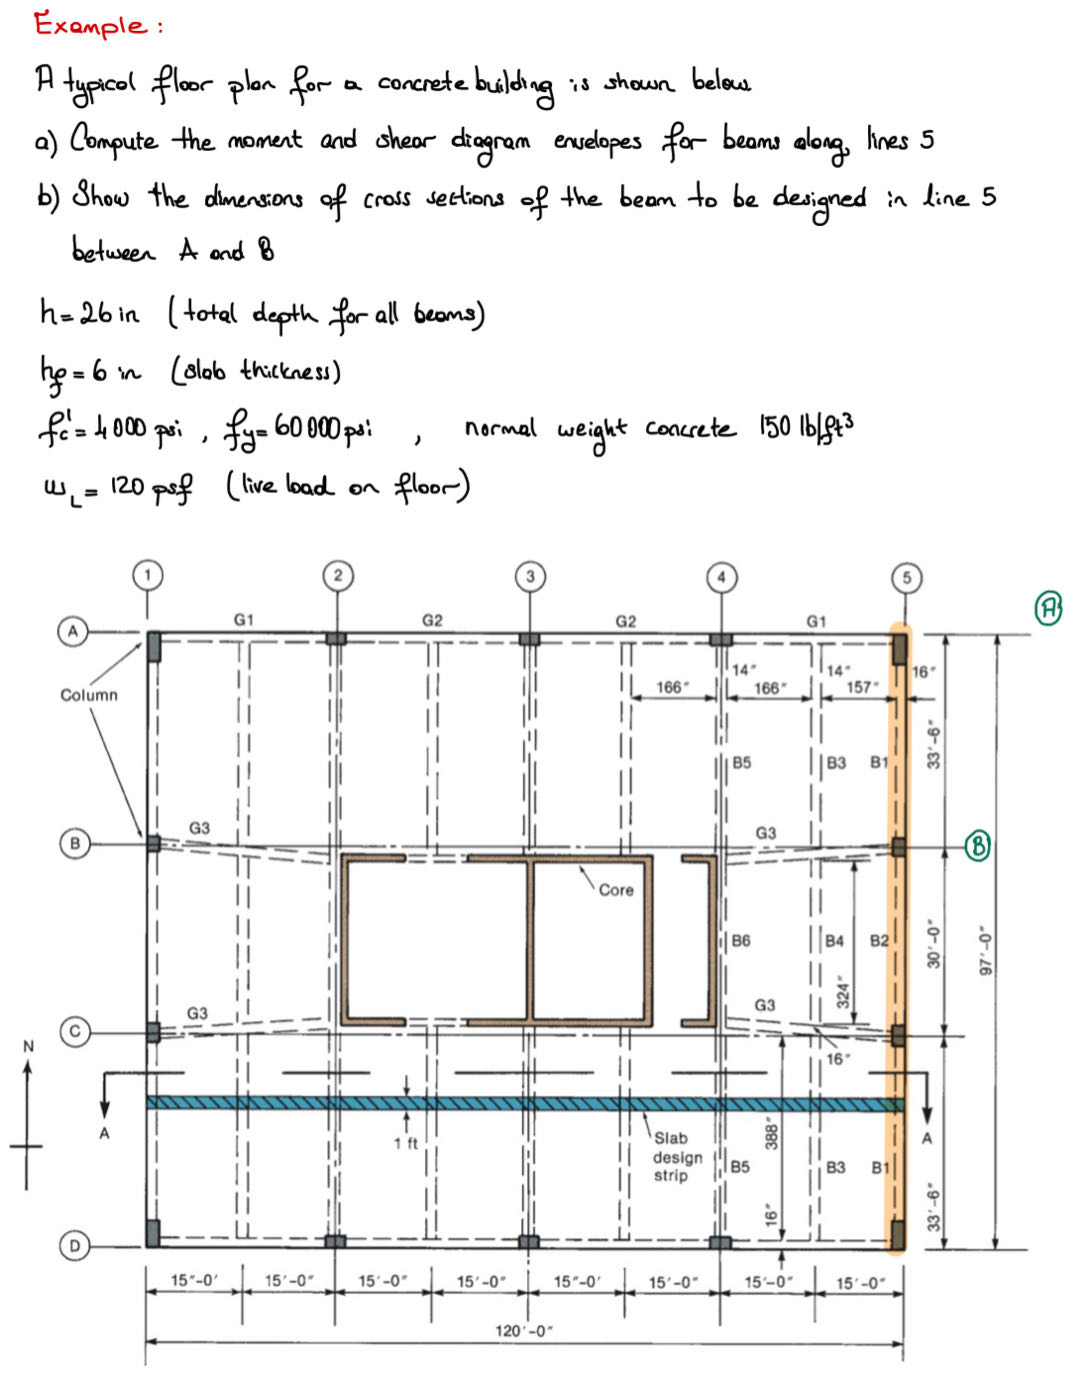 Example :
A typical floor plan for a concrete building is shown below
a) Compute the moment and shear diagram envelopes for beams along, lines 5
b) Show the dimensions of cross sections of the beam to be designed in line 5
between A and B
h = 26 in (total depth for all beams)
hf = 6 in (slab thickness)
fc' = 4000 psi , fy = 60000 psi , normal weight concrete 150 lb/ft³
wL = 120 psf (live load on floor)
1 2 3 4 5
A
G1 G2 G2 G1
A
Column
14" 14" 16"
166" 166" 157"
33'-6"
B5 B3 B1
G3 G3
B B
Core
B6 B4 B2
324"
30'-0"
97'-0"
G3 G3
C
16"
N
A A
1 ft
Slab
design
strip
388"
B5 B3 B1
16"
33'-6"
D
15"-0' 15'-0" 15'-0" 15'-0" 15"-0' 15'-0" 15'-0" 15'-0"
120'-0"